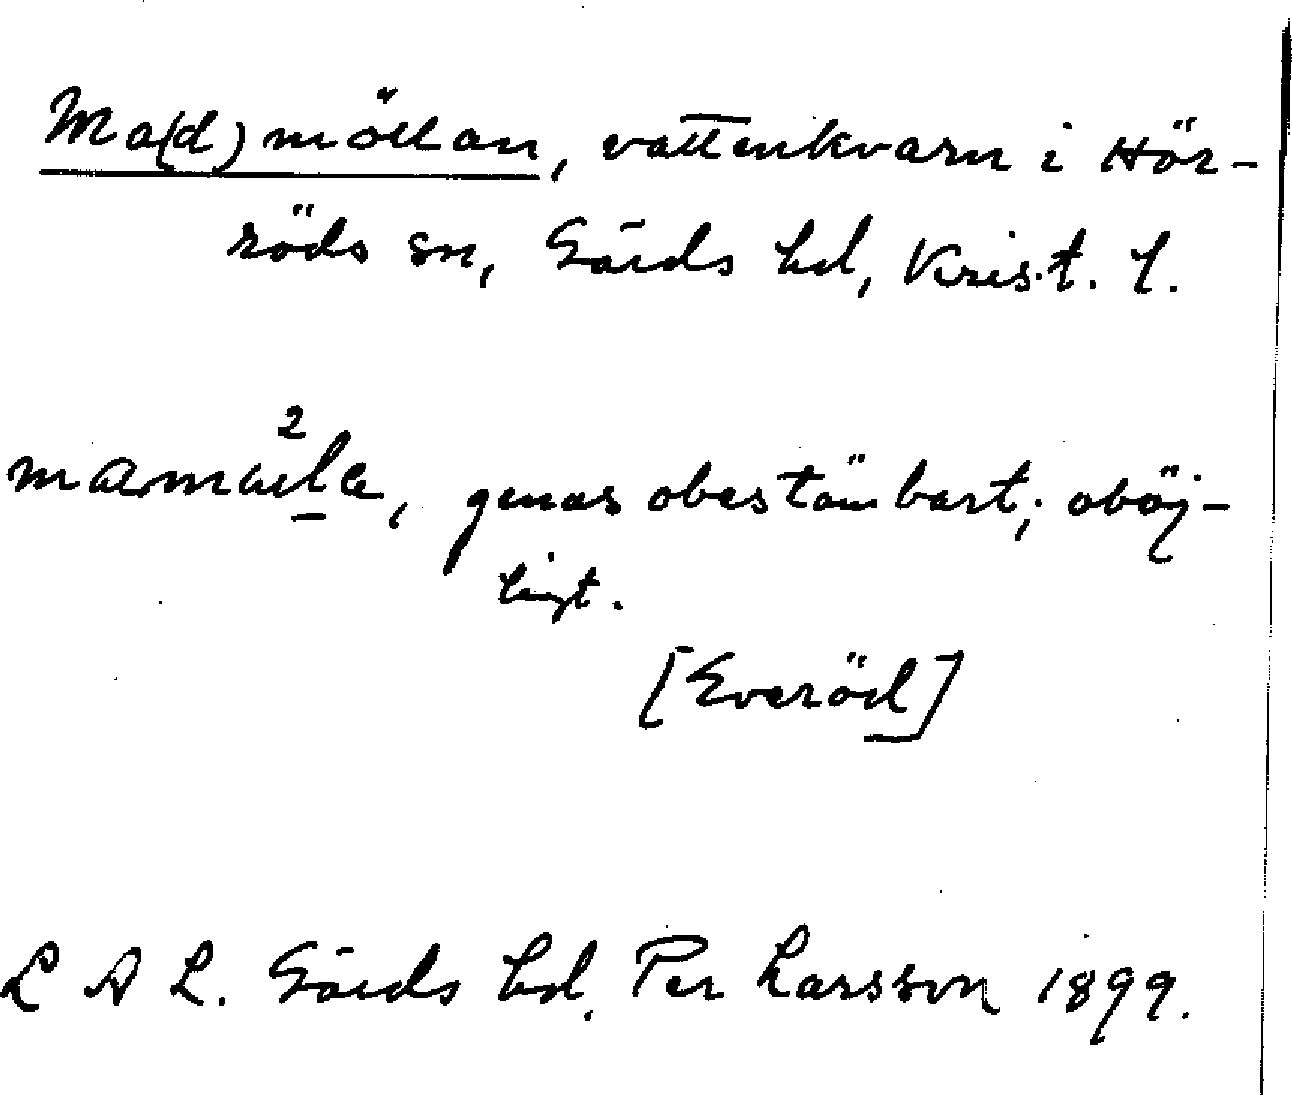 Ma(d)möllan, vattenkvarn i Hör-
röds sn, Gärds hd, Krist. l.
genus obestämbart; oböj-
ligt.
[Everöd]
L A L. Gärds hd. Per Larsson 1899.